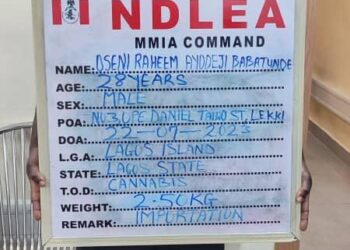 NDLEA
MMIA COMMAND
NAME: OSENI RAHEEM AYODEJI BABATUNDE
AGE: 38 YEARS
SEX: MALE
POA: NO 3, OPE DANIEL TAIWO ST, LEKKI
DOA: 22-07-2023
L.G.A: LAGOS ISLAND
STATE: LAGOS STATE
T.O.D: CANNABIS
WEIGHT: 2.50KG
REMARK: IMPORTATION